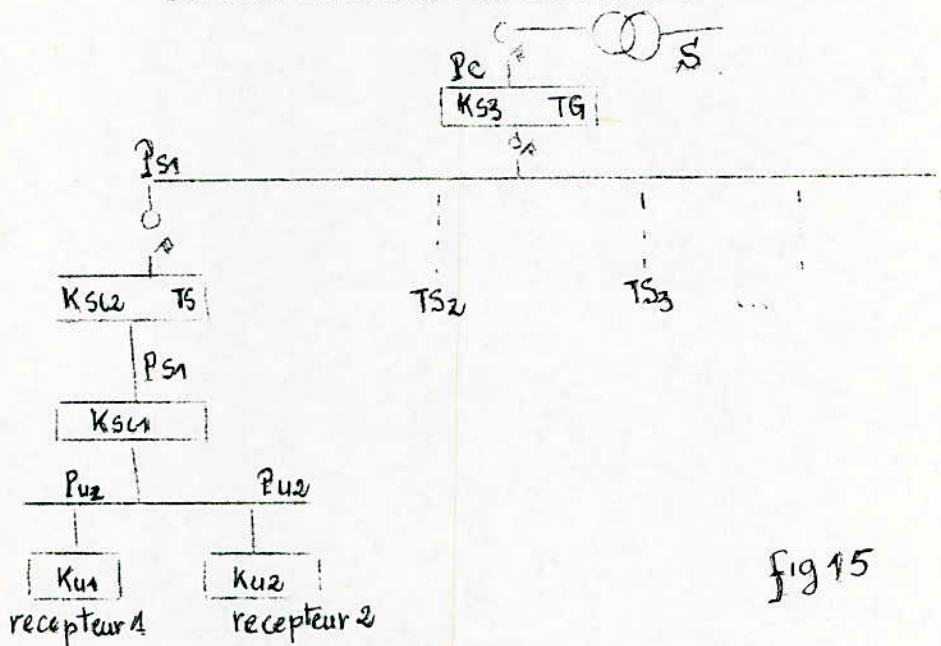 S
Pc
KS3 TG
PS1
KSL2 TS
TS2
TS3
...
PS1
KSL1
Pu2
Pu2
Ku1
Ku2
fig 15
recepteur 1
recepteur 2